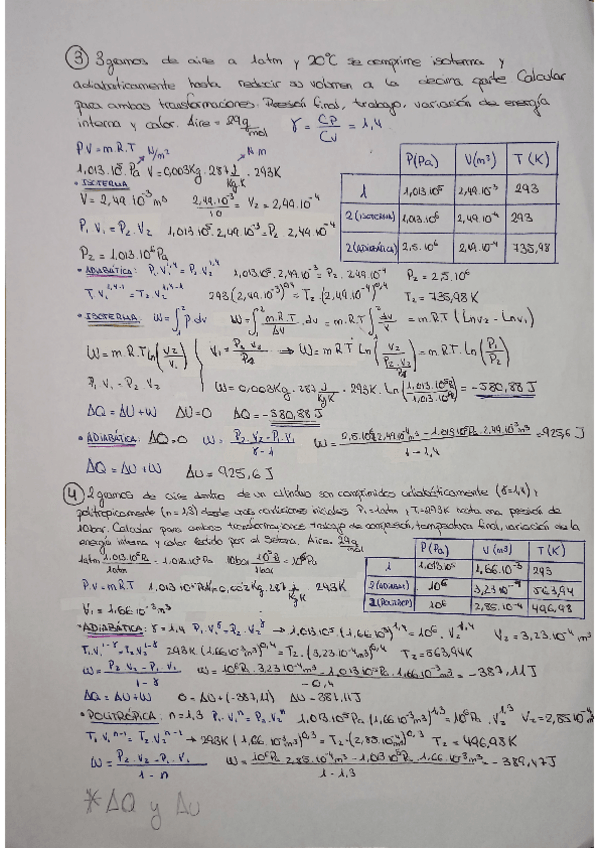 ③ 3 gramos de aire a 1 atm y 20°C se comprime isoterma y
adiabáticamente hasta reducir su volumen a la decima parte Calcular
para ambas transformaciones: Presión final, trabajo, variación de energía
interna y calor. Aire = 29 g/mol γ = CP/CV = 1,4
P.V = m.R.T N/m² N.m
1,013.10⁵ Pa V = 0,003Kg . 287 J/Kg.K . 293K
• ISOTERMA
V = 2,49.10⁻³ m³ 2,49.10⁻³/10 = V₂ = 2,49.10⁻⁴
P₁ V₁ = P₂ . V₂ 1,013.10⁵ . 2,49.10⁻³ = P₂ . 2,49.10⁻⁴
P₂ = 1,013.10⁶ Pa
P(Pa) V(m³) T (K)
1 1,013.10⁵ 2,49.10⁻³ 293
2 (ISOTERMA) 1,013.10⁶ 2,49.10⁻⁴ 293
2 (ADIABÁTICA) 2,5.10⁶ 2,49.10⁻⁴ 735,98
• ADIABÁTICA: P₁ V₁^1,4 = P₂ V₂^1,4 1,013.10⁵ . 2,49.10⁻³ = P₂ . 2,49.10⁻⁴ P₂ = 2,5.10⁶
T₁ V₁^1,4-1 = T₂ . V₂^1,4-1 293 (2,49.10⁻³)^0,4 = T₂ . (2,49.10⁻⁴)^0,4 T₂ = 735,98 K
• ISOTERMA: W = ∫₁² P.dv W = ∫₁² m.R.T/ΔV . dv = m.R.T ∫₁² dv/V = m.R.T (Ln V₂ - Ln V₁)
W = m.R.T Ln(V₂/V₁) V₁ = P₂.V₂/P₁ → W = m.R.T Ln(V₂/(P₂.V₂/P₁)) = m.R.T . Ln(P₁/P₂)
P₁ V₁ = P₂ V₂ W = 0,003Kg . 287 J/Kg.K . 293K . Ln(1,013.10⁵/1,013.10⁶) = -580,88 J
ΔQ = ΔU + W ΔU = 0 ΔQ = -580,88 J
• ADIABÁTICA: ΔQ = 0 W = P₂.V₂ - P₁.V₁/γ - 1 W = 2,5.10⁶ 2,49.10⁻⁴m³ - 1,013.10⁵Pa . 2,49.10⁻³m³/1 - 1,4 = 925,6 J
ΔQ = ΔU + W ΔU = 925,6 J
④ 2 gramos de aire dentro de un cilindro son comprimidos adiabáticamente (γ=1,4) y
politropicamente (n = 1,3) desde unas condiciones iniciales P₁ = 1 atm y T₁ = 293K hasta una presion de
10 bar. Calcular para ambas transformaciones trabajo de compresion, temperatura final, variacion de la
energía interna y calor cedido por el sistema. Aire. 29 g/mol
1 atm 1,013.10⁵ Pa/1 atm = 1,013.10⁵ Pa 10 bar 10⁵ Pa/1 bar = 10⁶ Pa
P.V = m.R.T 1,013.10⁵ Pa V = 0,002 Kg . 287 J/Kg.K 293K
V₁ = 1,66.10⁻³ m³
P(Pa) V(m³) T(K)
1 1,013.10⁵ 1,66.10⁻³ 293
2 (ADIABAT) 10⁶ 3,23.10⁻⁴ 563,94
2 (POLITROP) 10⁶ 2,85.10⁻⁴ 496,98
• ADIABÁTICA: γ = 1,4 P₁.V₁^γ = P₂.V₂^γ → 1,013.10⁵ . (1,66.10⁻³)^1,4 = 10⁶ . V₂^1,4 V₂ = 3,23.10⁻⁴ m³
T₁ V₁^1-γ = T₂ V₂^1-γ 293K (1,66.10⁻³m³)^0,4 = T₂ . (3,23.10⁻⁴m³)^0,4 T₂ = 563,94K
W = P₂ V₂ - P₁ V₁/1 - γ W = 10⁶Pa . 3,23.10⁻⁴m³ - 1,013.10⁵Pa . 1,66.10⁻³m³/-0,4 = -387,11 J
ΔQ = ΔU + W 0 = ΔU + (-387,11) ΔU = 387,11 J
• POLITRÓPICA: n = 1,3 P₁.V₁ⁿ = P₂.V₂ⁿ 1,013.10⁵Pa (1,66.10⁻³m³)^1,3 = 10⁶Pa . V₂^1,3 V₂ = 2,85.10⁻⁴m³
T₁ V₁ⁿ⁻¹ = T₂ . V₂ⁿ⁻¹ → 293K (1,66.10⁻³m³)^0,3 = T₂ . (2,85.10⁻⁴m³)^0,3 T₂ = 496,98K
W = P₂.V₂ - P₁.V₁/1 - n W = 10⁶Pa 2,85.10⁻⁴m³ - 1,013.10⁵Pa . 1,66.10⁻³m³/1 - 1,3 = -389,47 J
* ΔQ y ΔU